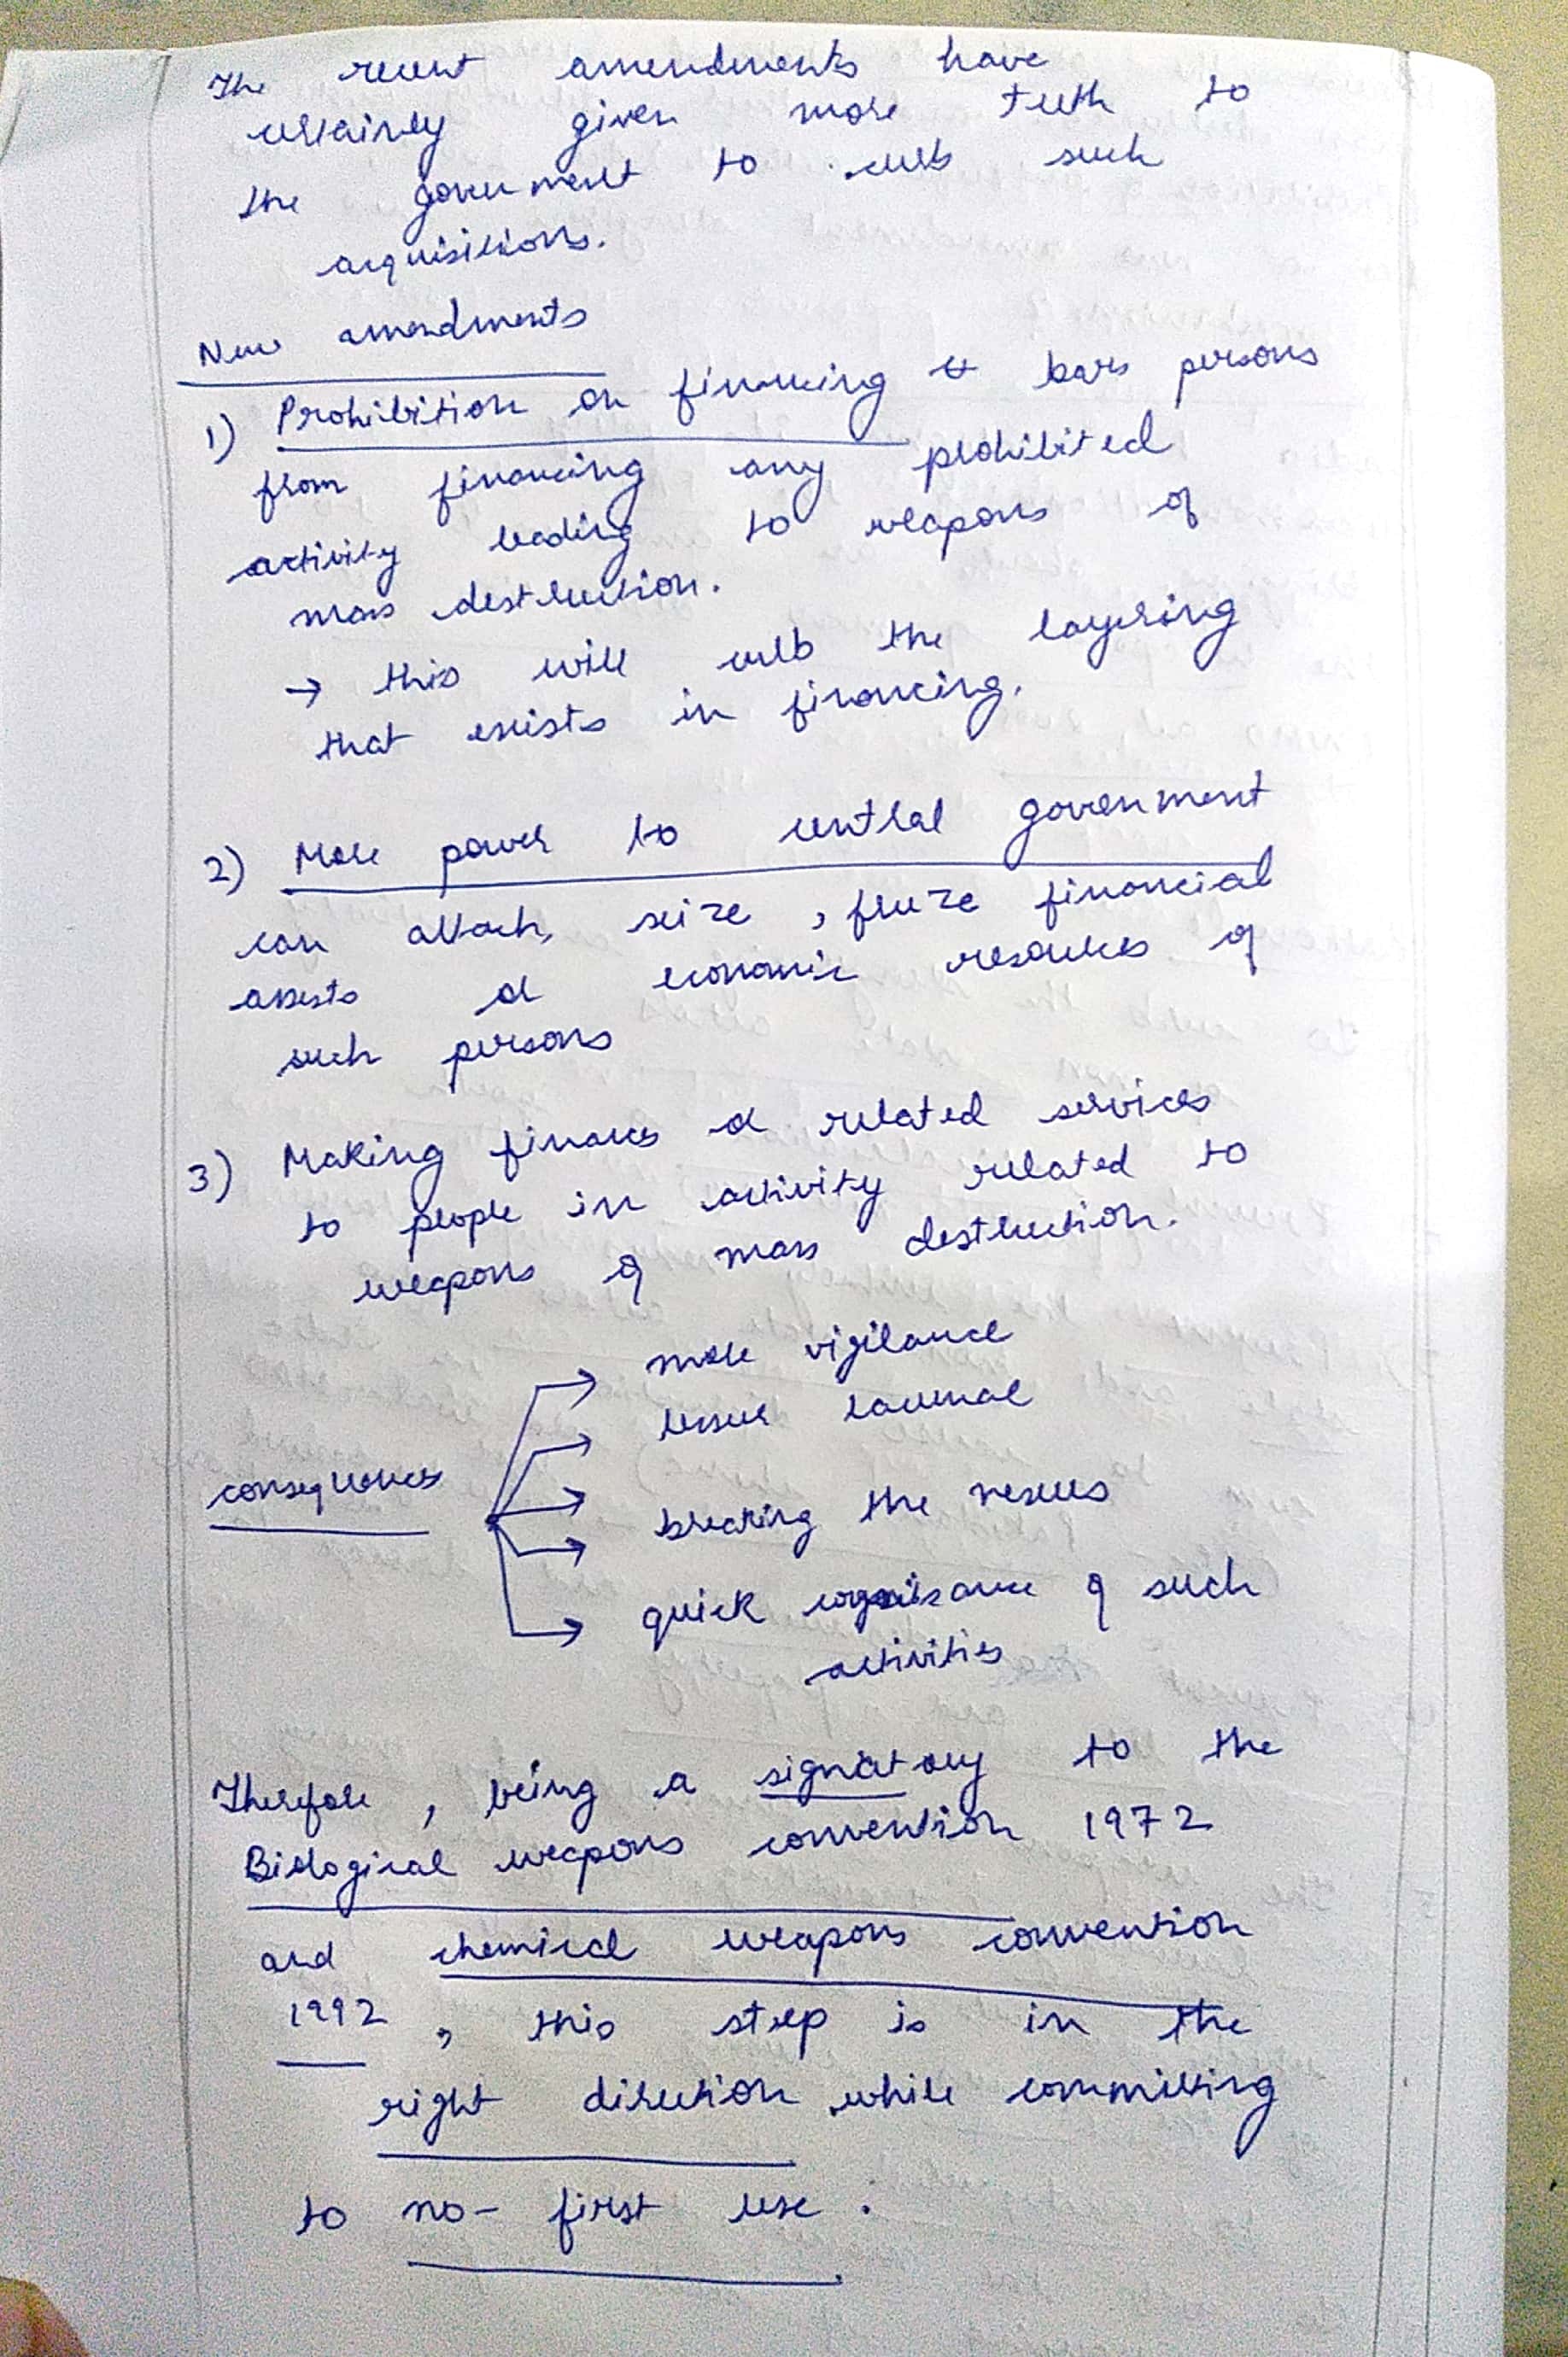 The recent amendments have
certainly given more teeth to
the government to curb such
acquisitions.
New amendments
1) Prohibition on financing bars persons
from financing any prohibited
activity leading to weapons of
mass destruction.
→ this will curb the layering
that exists in financing.
2) More power to central government
can attach, seize, freeze financial
assests or economic resources of
such persons
3) Making finances or related services
to people in activity related to
weapons of mass destruction.
consequences
more vigilance
lesser
breaking the nexus
quick cognisance of such
activities
Therefore, being a signatory to the
Biological weapons convention 1972
and chemical weapons convention
1992, this step is in the
right direction while committing
to no-first use.